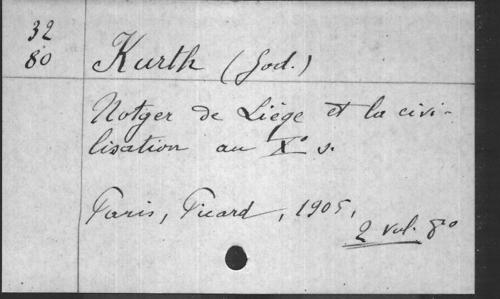 32
80
Kurth (God.)
Notger de Liége et la civi-
lisation au X° s.
Paris, Picard, 1905,
2 vol. 8°